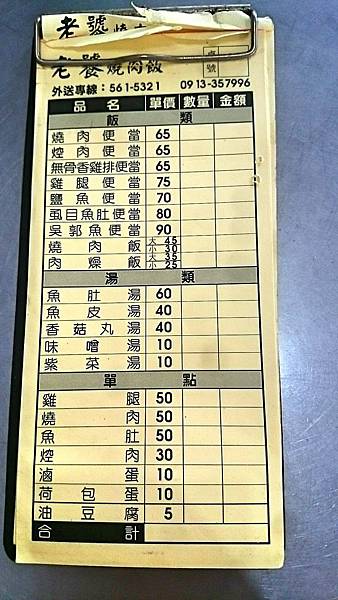 老號燒
老號燒肉飯
桌號
外送專線：561-5321 0913-357996
品名 單價 數量 金額
飯類
燒肉便當 65
焢肉便當 65
無骨香雞排便當 65
雞腿便當 75
鹽魚便當 70
虱目魚肚便當 80
吳郭魚便當 90
燒肉飯 大45 小30
肉燥飯 大35 小25
湯類
魚肚湯 60
魚皮湯 40
香菇丸湯 40
味噌湯 10
紫菜湯 10
單點
雞腿 50
燒肉 50
魚肚 50
焢肉 30
滷蛋 10
荷包蛋 10
油豆腐 5
合計